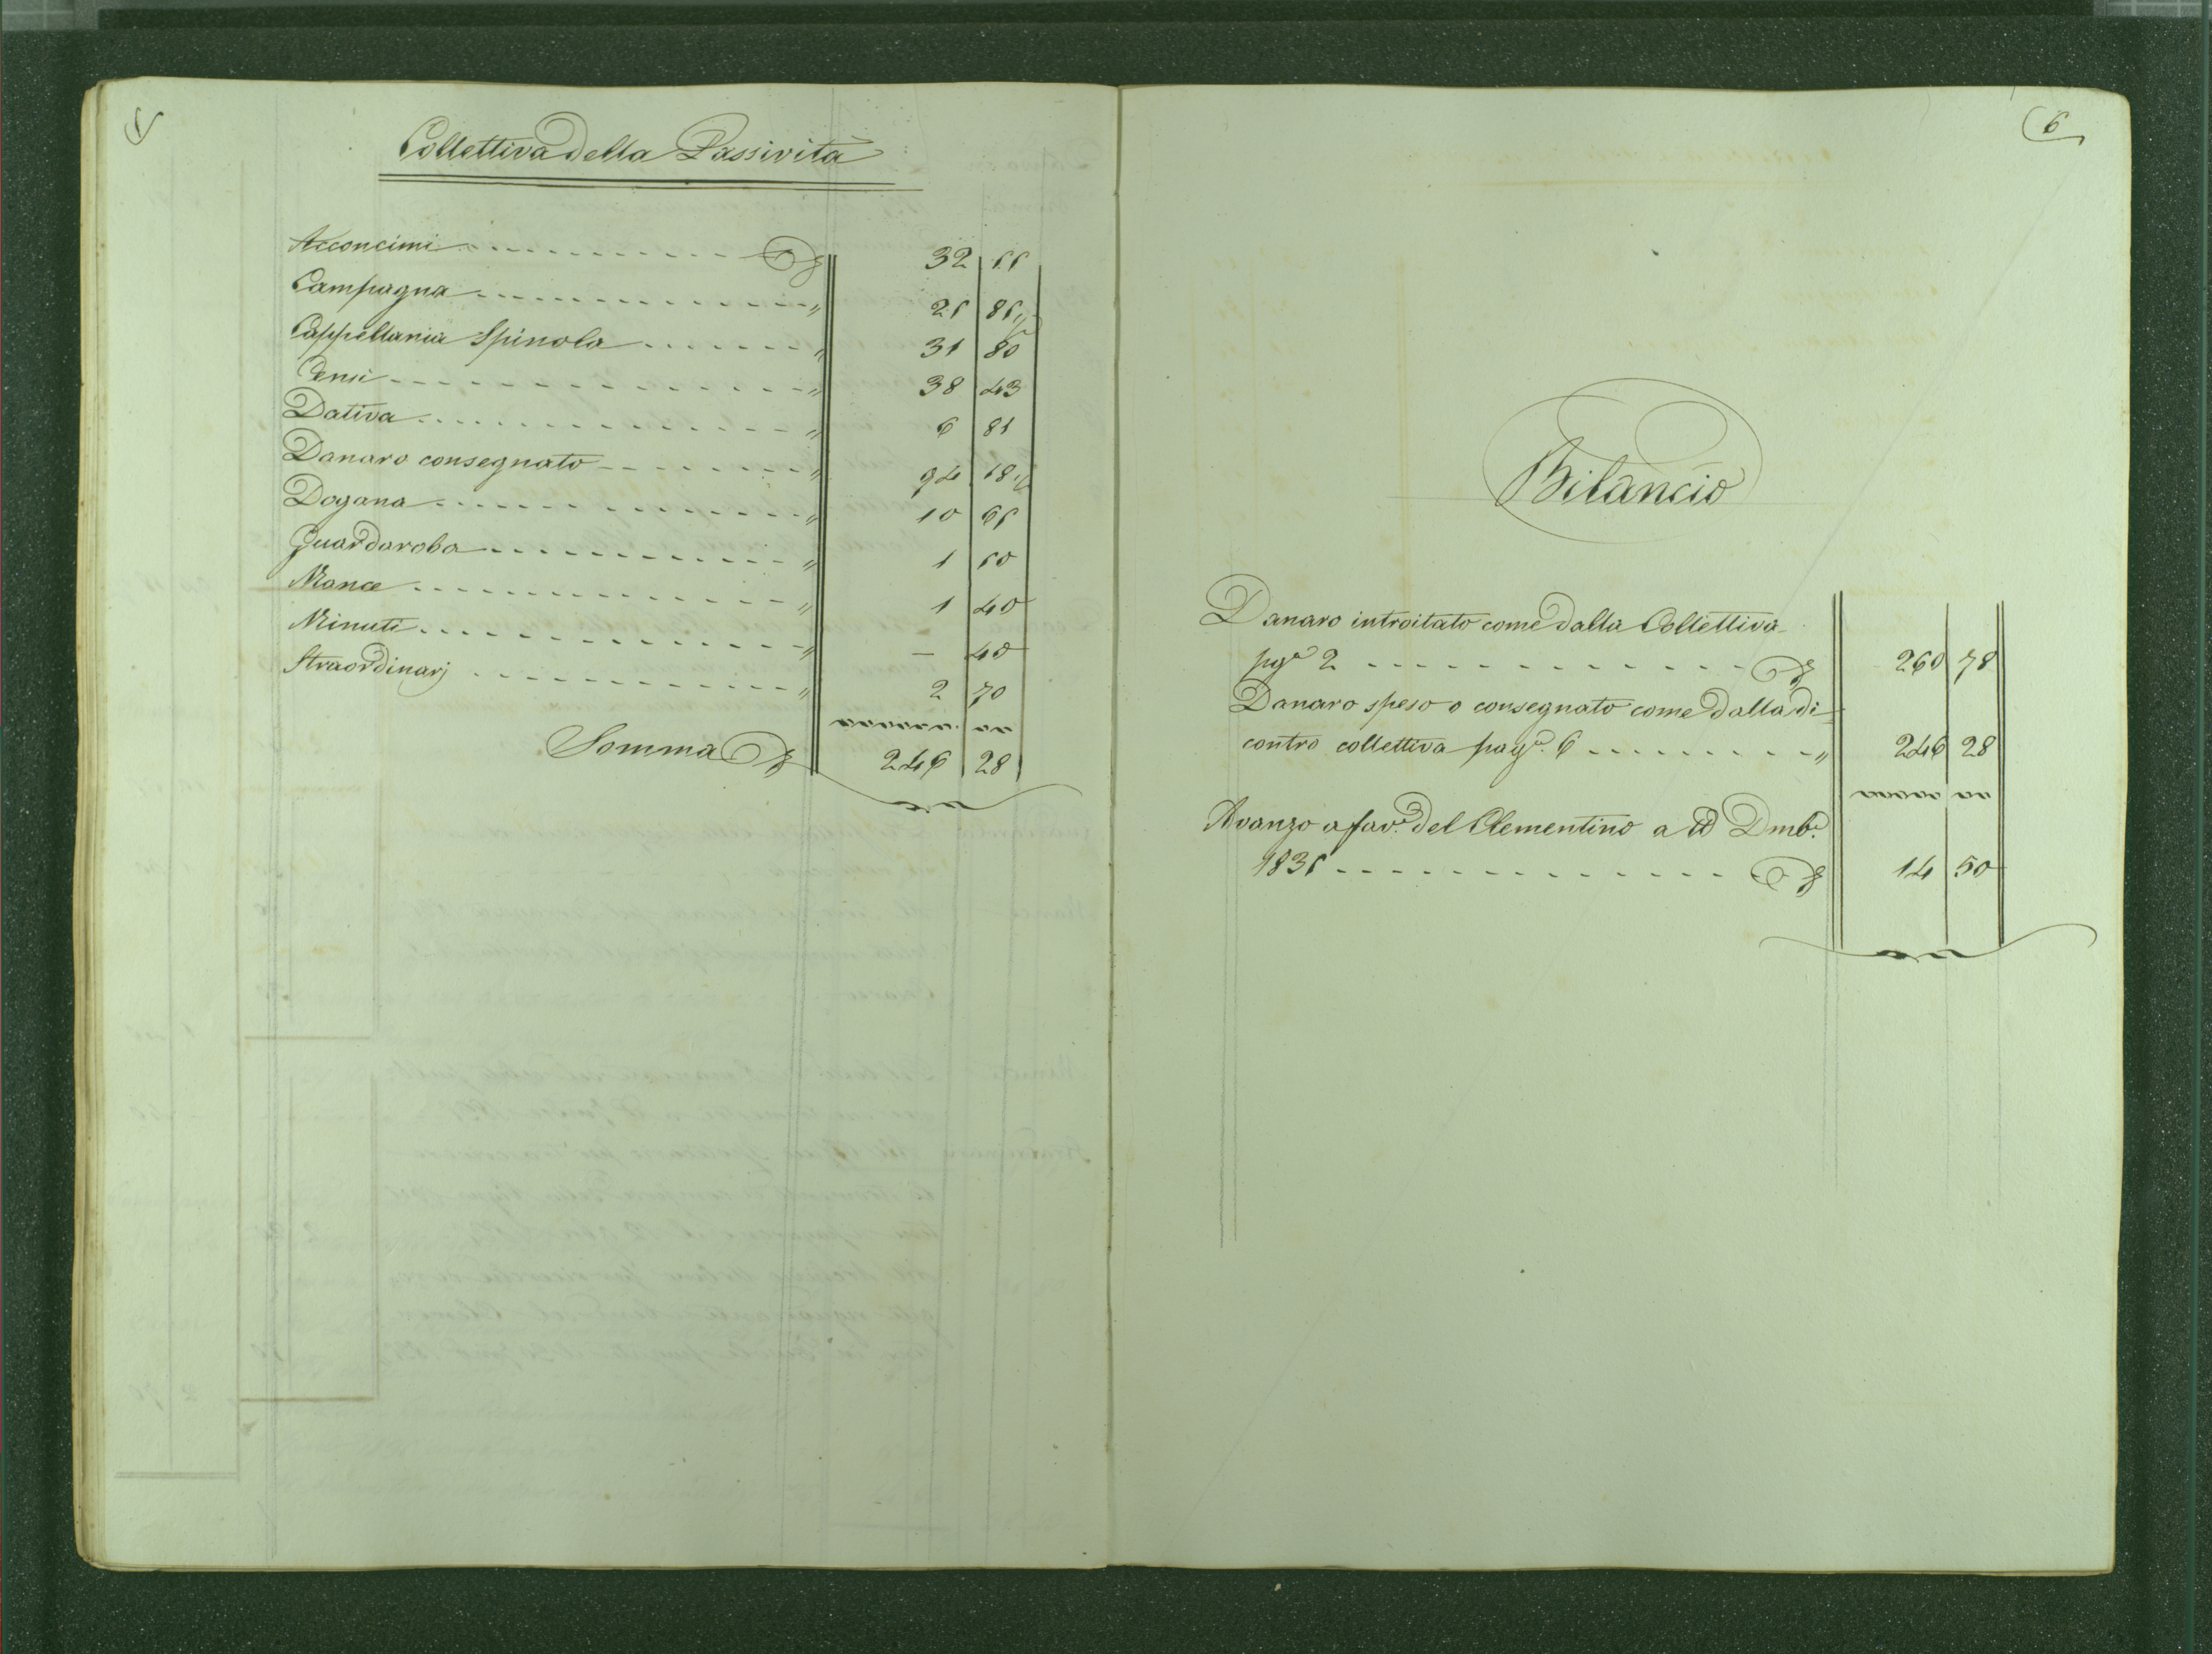 5
Collettiva della Passività
Acconcimi 32 55
Campagna " 25 85½
Cappellania Spinola " 31 80
Censi " 38 43
Dativa " 6 81
Danaro consegnato " 94 18½
Dogana " 10 65
Guardaroba " 1 50
Mance " 1 40
Minuti " — 40
Straordinarj " 2 70
Somma 246 28
6
Bilancio
Danaro introitato come dalla Collettiva
pga 2 260 78
Danaro speso o consegnato come dalla di
contro collettiva paga. 6 " 246 28
Avanzo a fave. del Clementino a tt° Dmbe.
1835 14 50